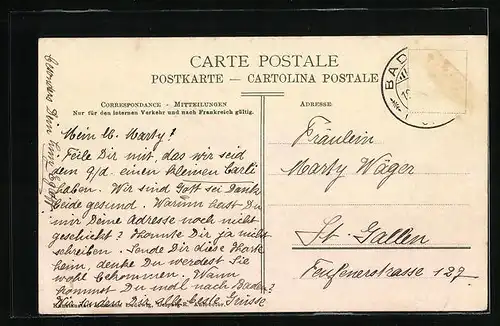 CARTE POSTALE
POSTKARTE — CARTOLINA POSTALE
CORRESPONDANCE - MITTEILUNGEN
Nur für den internen Verkehr und nach Frankreich gültig.
ADRESSE:
BAD
Mein lb. Marty!
Teile Dir mit, das wir seid
dem 9/d. einen kleinen Carli
haben. Wir sind Gott sei Dank
beide gesund. Warum hast Du
mir Deine Adresse noch nicht
geschickt? Konnte Dir ja nicht
schreiben. Sende Dir diese Karte
heim, denke Du werdest Sie
wohl bekommen. Wann
kommst Du mal nach Baden?
Wir senden Dir alle beste Grüsse
besonders Dein
Fräulein
Marty Wäger
St. Gallen
127.